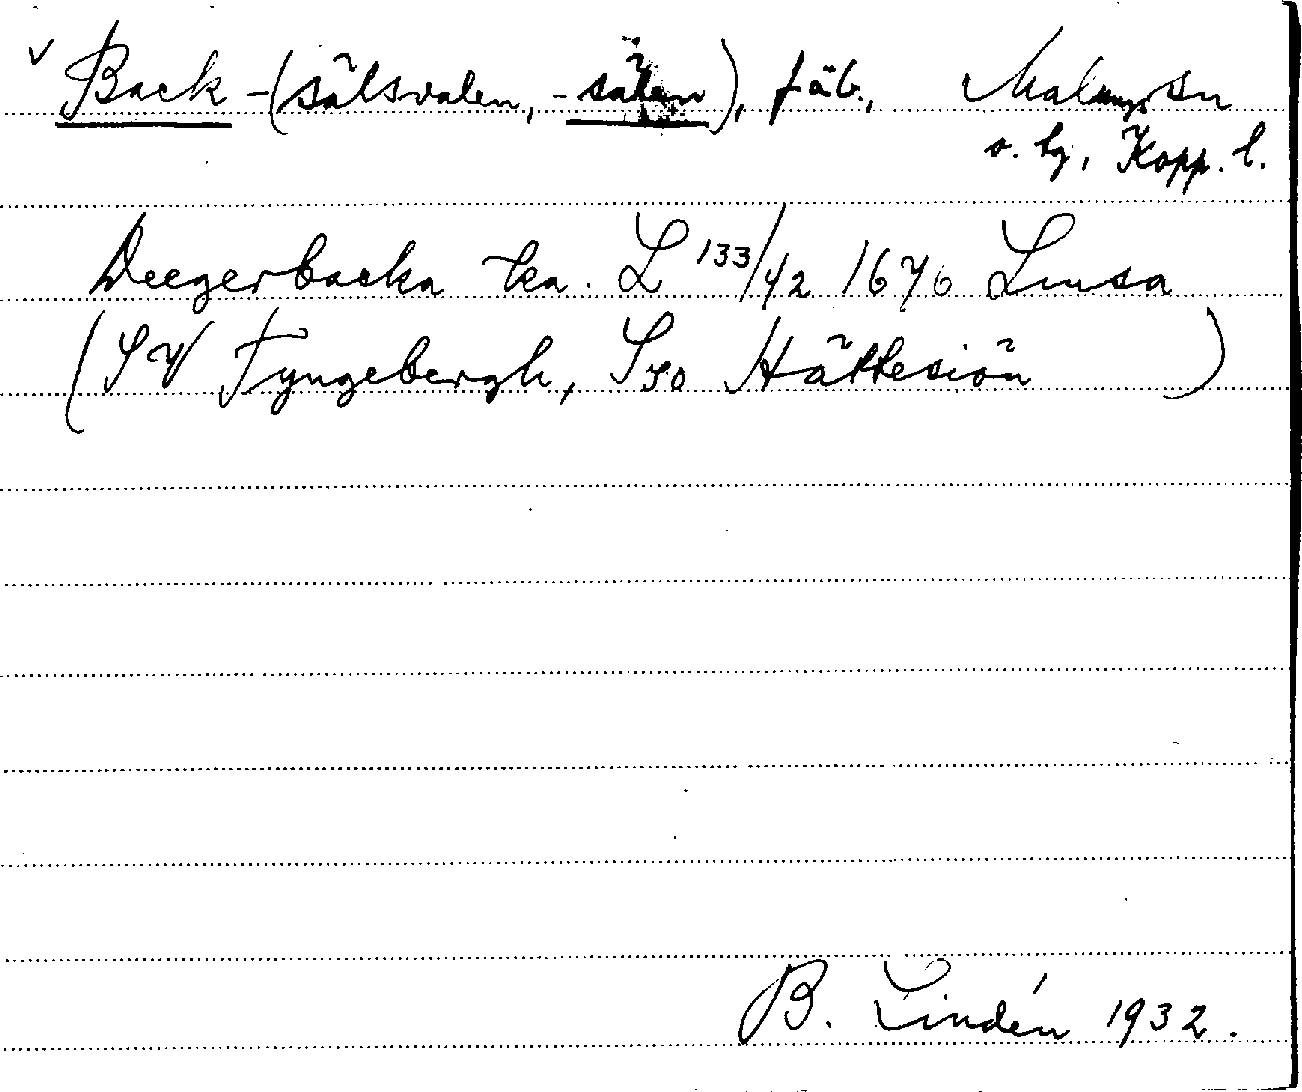 v Back -(sälsvalen, -sälen), fäb., Malungs sn
o. hg, Kopp. l.
Deegerbacka ka. L 133/42 1676 Limsa
(SV Fyngebergh, SSO Hättesiön )
B. Lindén 1932.